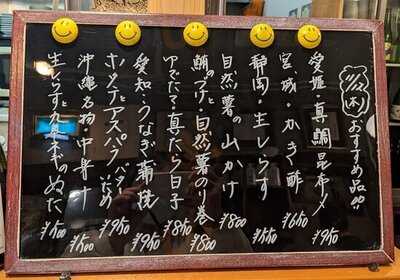 11/12(木)おすすめ品!!
愛媛・真鯛昆布〆 ¥950
宮城・かき酢 ¥650
静岡・生しらす ¥550
自然薯の山かけ ¥800
鯛のづけと自然薯のり巻 ¥800
ゆでたて・真だら白子 ¥850
愛知・うなぎ蒲焼 ¥950
ホッケとアスパラバターいため ¥950
沖縄名物・中身汁 ¥500
生しらすと九条ネギのぬた ¥500